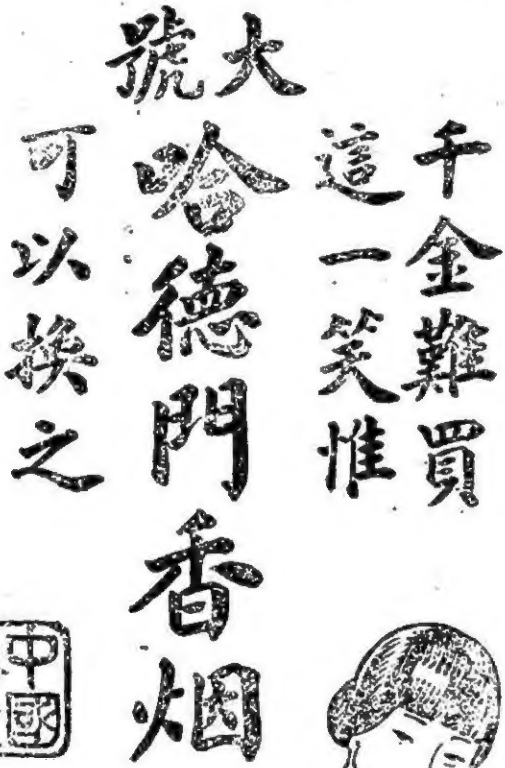 千金難買
這一笑惟
大號
哈德門香烟
可以換之
中國